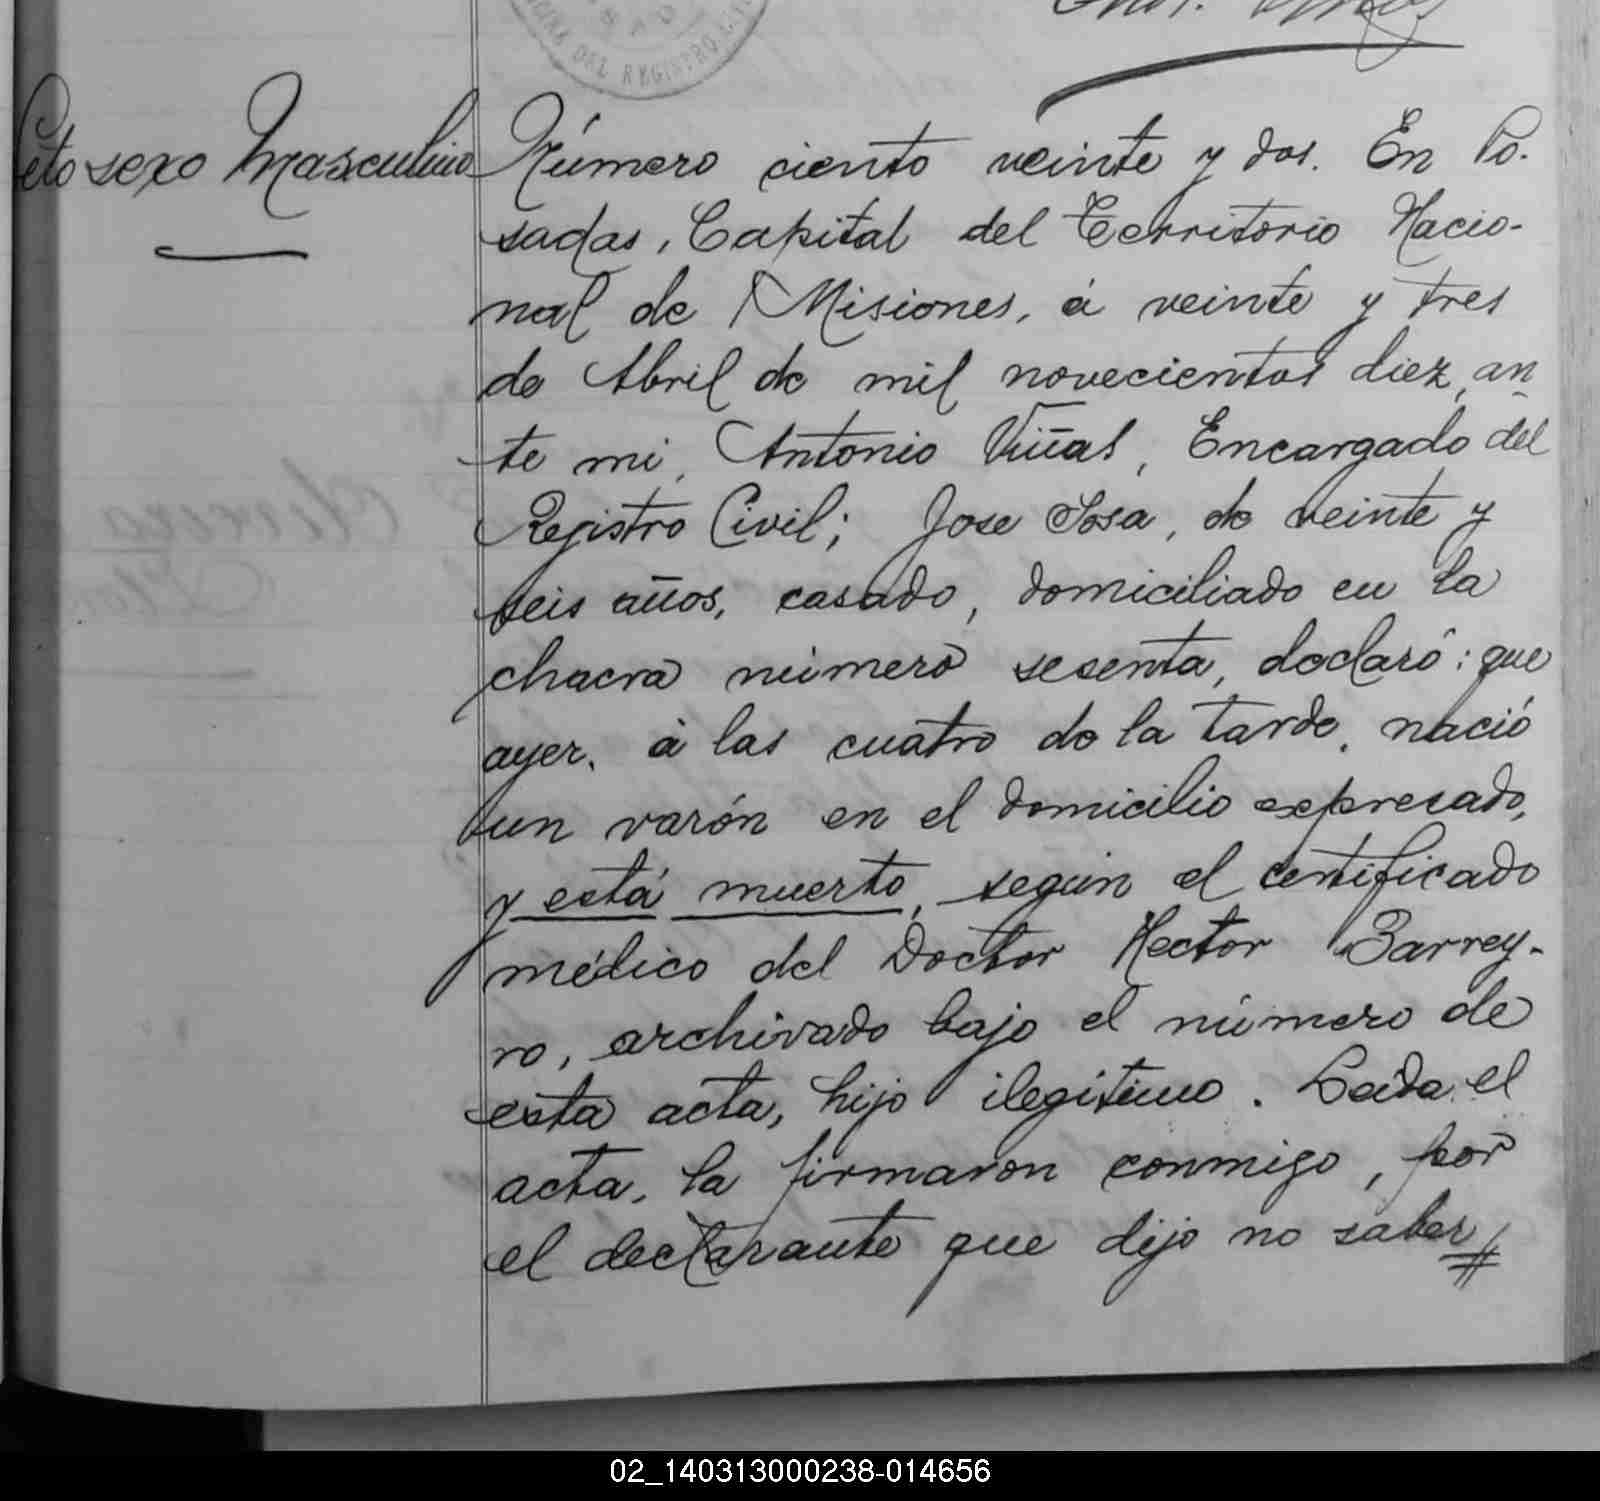 OFICINA DEL REGISTRO CIVIL
Feto sexo Masculino
Número ciento veinte y dos. En Po-
sadas, Capital del Territorio Nacio-
nal de Misiones, á veinte y tres
de Abril de mil novecientos diez, an-
te mi, Antonio Viñas, Encargado del
Registro Civil; Jose Sosa, de veinte y
seis años, casado, domiciliado en la
chacra número sesenta, declaró: que
ayer, á las cuatro de la tarde, nació
un varón en el domicilio expresado,
y está muerto, según el certificado
médico del Doctor Hector Barrey-
ro, archivado bajo el número de
esta acta, hijo ilegítimo. Leida el
acta, la firmaron conmigo, por
el declarante que dijo no saber
02_140313000238-014656